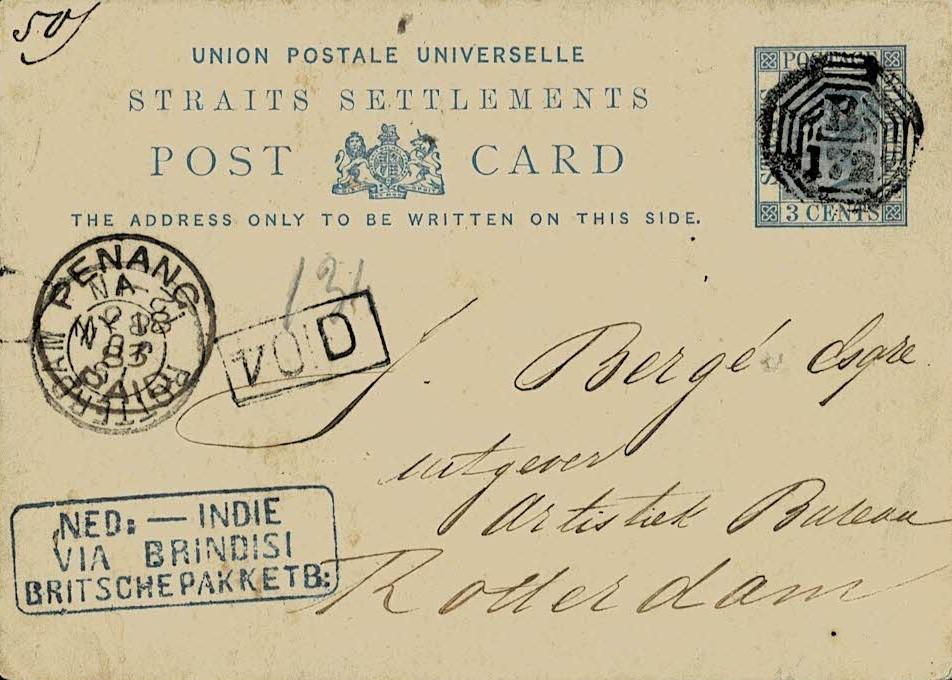 50
UNION POSTALE UNIVERSELLE
STRAITS SETTLEMENTS
POST CARD
THE ADDRESS ONLY TO BE WRITTEN ON THIS SIDE.
POSTAGE
3 CENTS
B
172
PENANG
PAID
ROTTERDAM
131
VOID
J. Bergé Esqre
uitgever
Artistiek Bureau
Rotterdam
NED: — INDIE
VIA BRINDISI
BRITSCHEPAKKETB: